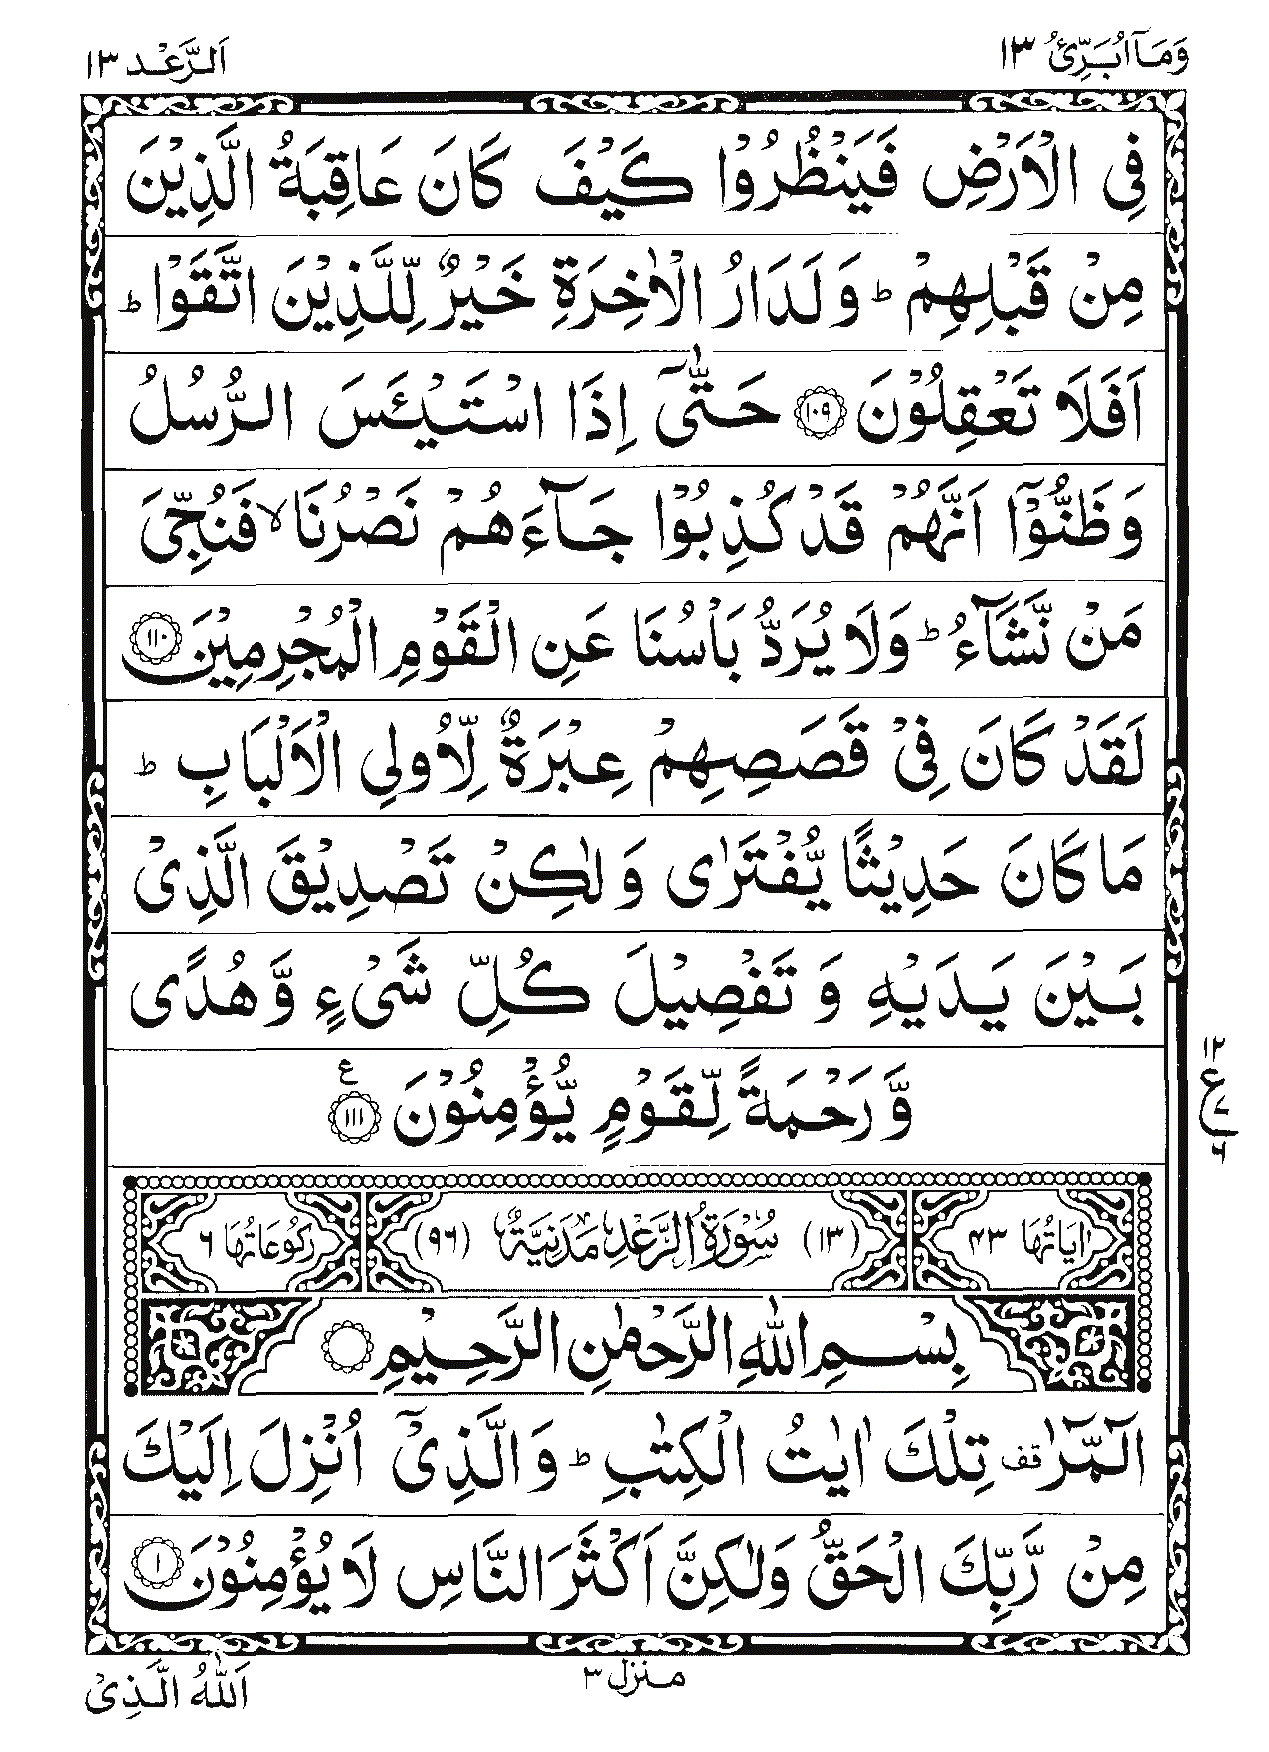 وَمَاۤ اُبَرِّئُ ١٣
اَلرَّعْد ١٣
فِی الْاَرْضِ فَیَنْظُرُوْا كَیْفَ كَانَ عَاقِبَةُ الَّذِیْنَ
مِنْ قَبْلِهِمْ ؕ وَلَدَارُ الْاٰخِرَةِ خَیْرٌ لِّلَّذِیْنَ اتَّقَوْا ؕ
اَفَلَا تَعْقِلُوْنَ ﴿١٠٩﴾ حَتّٰۤی اِذَا اسْتَیْـَٔسَ الرُّسُلُ
وَظَنُّوْۤا اَنَّهُمْ قَدْ كُذِبُوْا جَآءَهُمْ نَصْرُنَا ۙ فَنُجِّیَ
مَنْ نَّشَآءُ ؕ وَلَا یُرَدُّ بَاْسُنَا عَنِ الْقَوْمِ الْمُجْرِمِیْنَ ﴿١١٠﴾
لَقَدْ كَانَ فِیْ قَصَصِهِمْ عِبْرَةٌ لِّاُولِی الْاَلْبَابِ ؕ
مَا كَانَ حَدِیْثًا یُّفْتَرٰی وَلٰكِنْ تَصْدِیْقَ الَّذِیْ
بَیْنَ یَدَیْهِ وَ تَفْصِیْلَ كُلِّ شَیْءٍ وَّ هُدًی
وَّ رَحْمَةً لِّقَوْمٍ یُّؤْمِنُوْنَ ﴿١١١﴾ ع
١٢
ع
٧
٦
اٰیَاتُهَا ٤٣ (١٣) سُوْرَةُ الرَّعْدِ مَدَنِیَّةٌ (٩٦) رُكُوْعَاتُهَا ٦
بِسْمِ اللّٰهِ الرَّحْمٰنِ الرَّحِیْمِ
الٓمّٓرٰ قف تِلْكَ اٰیٰتُ الْكِتٰبِ ؕ وَالَّذِیْۤ اُنْزِلَ اِلَیْكَ
مِنْ رَّبِّكَ الْحَقُّ وَلٰكِنَّ اَكْثَرَ النَّاسِ لَا یُؤْمِنُوْنَ ﴿١﴾
منزل ٣
اَللّٰهُ الَّذِیْ